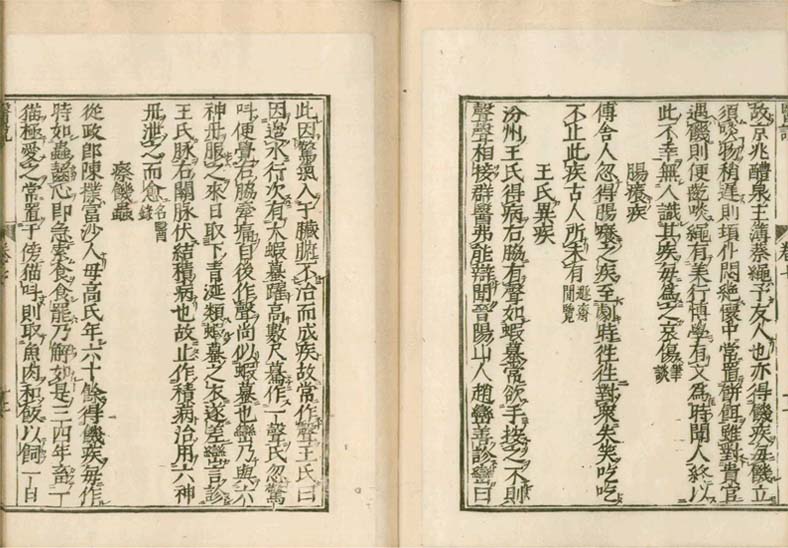 醫說　卷七
故京兆醴泉主簿蔡繩予友人也亦得饑疾每饑立
須啖物稍遲則頃仆悶絶懷中常置餅餌雖對貴官
遇饑則便齕啖繩有美行博學有文爲時聞人終以
此不幸無人識其疾毎爲之哀傷筆談
腸癢疾
傅舍人忽得腸癢之疾至劇時徃徃對衆失笑吃吃
不止此疾古人所未有遯齋閒覽
王氏異疾
汾州王氏得病右脇有聲如蝦蟇常欲手按之不則
聲聲相接群醫弗能辯聞晉陽山人趙巒善診巒曰
此因驚氣入于臓腑不治而成疾故常作聲王氏曰
因邉水行次有大蝦蟇躍高數尺蓦作一聲氏忽驚
叫便覺右脇牽痛自後作聲尚似蝦蟇也巒乃與六
神丹服之來日取下青涎類蝦蟇之衣遂差巒言診
王氏脉右關脉伏結積病也故止作積病治用六神
丹泄之而愈名醫錄
療饑蟲
從政郎陳樸富沙人母高氏年六十餘得饑疾毎作
時如蟲齧心即急索食食罷乃解如是三四年畜一
猫極愛之常置于傍猫叫則取魚肉和飯以飼一日
醫說　卷七